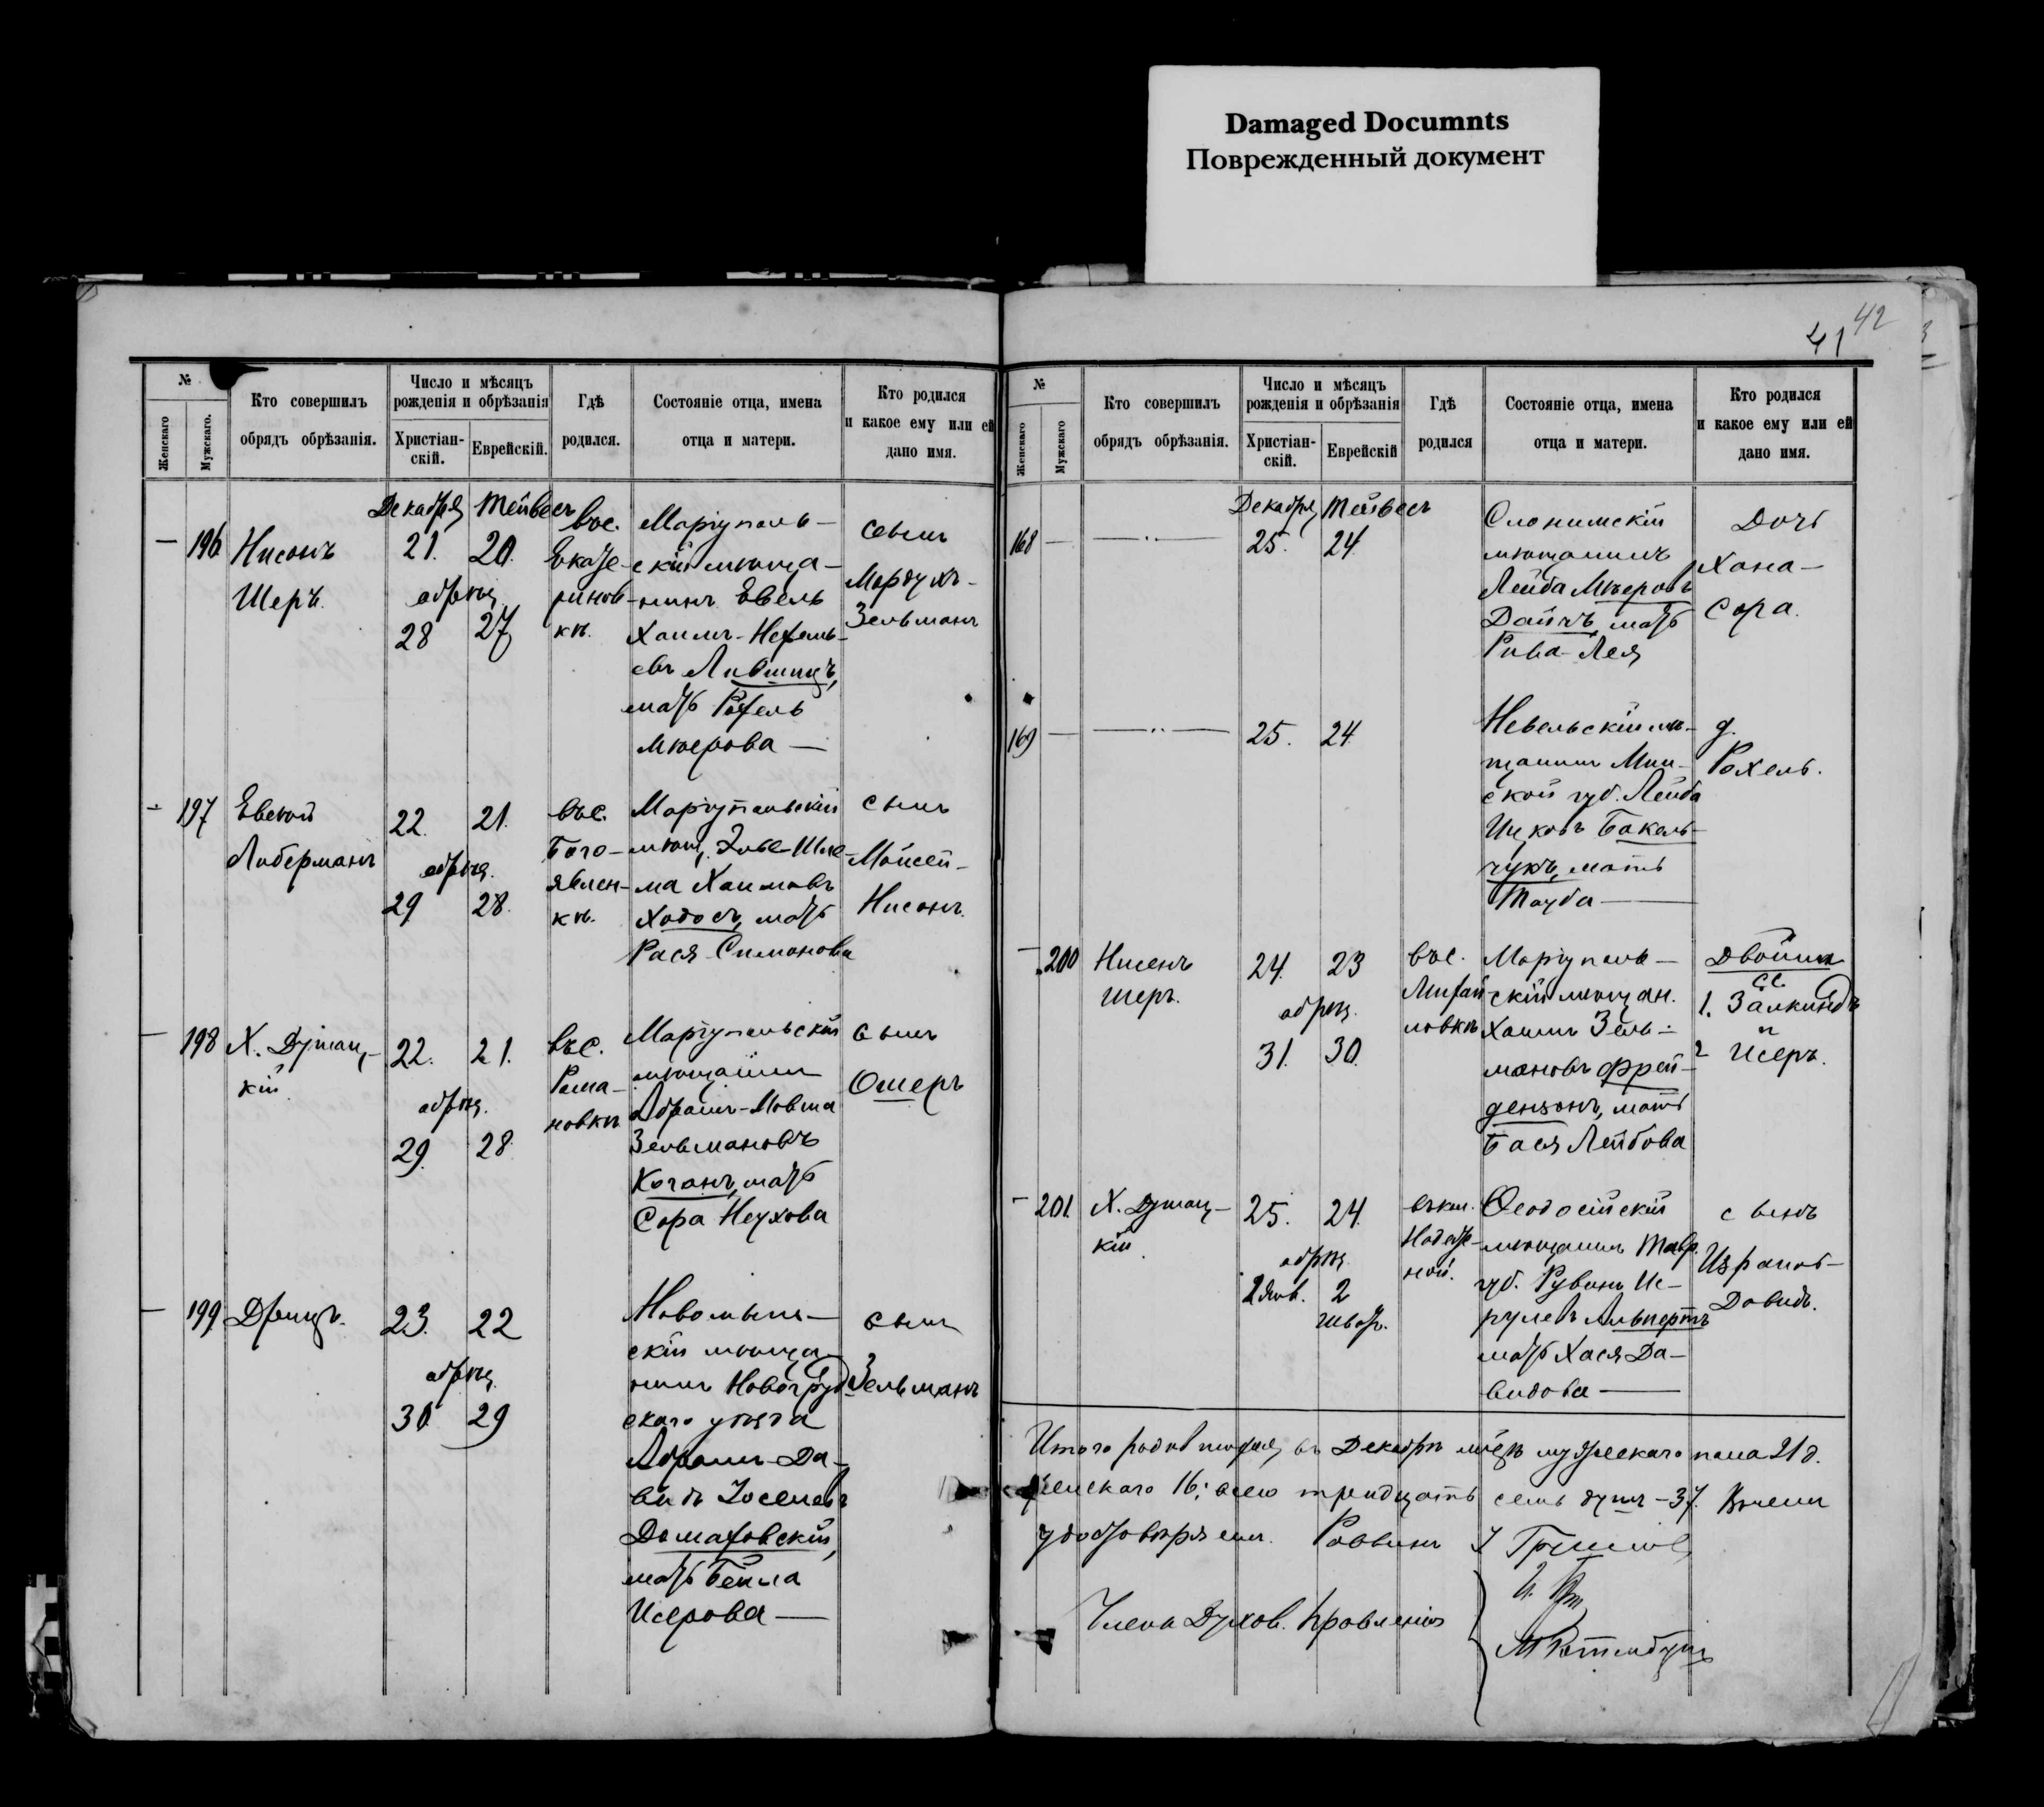 Damaged Documnts
Поврежденный документ
42
41
№
Женскаго
Мужскаго.
Кто совершилъ
обрядъ обрѣзанія.
Число и мѣсяцъ
рожденія и обрѣзанія
Христіан-
скій.
Еврейскій.
Гдѣ
родился.
Состояніе отца, имена
отца и матери.
Кто родился
и какое ему или ей
дано имя.
Декабря Тейвесъ
— 196
Нисонъ
Шеръ.
21. 20.
обрѣз.
28 27
въ с.
Екате-
ринов-
кѣ.
Маріуполь-
скій мѣща-
нинъ Евель
Хаимъ-
евъ Лившицъ,
мать Рохель
Меерова —
сынъ
Мордухъ-
Зельманъ
— 197
Либерманъ
22. 21.
обрѣз.
29 28.
въ с.
Бого-
явлен-
кѣ.
Маріупольскій
мѣщ.
ма Хаимовъ
Ходосъ, мать
Рася Симонова
сынъ
Мойсей-
Нисонъ.
— 198
Х. Думан-
кій
22. 21.
обрѣз.
29. 28
въ с.
Рома-
новкѣ
Маріупольскій
мѣщанинъ
Абрамъ-Мовша
Зельмановъ
Коганъ, мать
Сора Неухова
сынъ
Ошеръ
— 199
23. 22
обрѣз.
30 29
скій мѣща-
нинъ Новогруд-
скаго уѣзда
Абрамъ-Да-
видъ Іоселевъ
Домаховскій,
мать Бейла
Исерова —
сынъ
Зельманъ
№
Женскаго
Мужскаго
Кто совершилъ
обрядъ обрѣзанія.
Число и мѣсяцъ
рожденія и обрѣзанія
Христіан-
скій.
Еврейскій
Гдѣ
родился
Состояніе отца, имена
отца и матери.
Кто родился
и какое ему или ей
дано имя.
Декабря Тейвесъ
168 —
25. 24
Слонимскій
мѣщанинъ
Лейба Мееровъ
Дайчъ, мать
Рива-Лея
Дочь
Хана-
Сора.
169 —
25. 24
Невельскій мѣ-
щанинъ Мин-
ской губ. Лейба
Ицковъ Бакаль-
чукъ, мать
Тауба —
д.
Рохель.
— 200
Нисенъ
Шеръ.
24. 23
обрѣз.
31. 30.
въ с.
Михай
ловкѣ
Маріуполь-
скій мѣщан.
Хаимъ Зель-
мановъ Фрей-
дензонъ, мать
Бася Лейбова
Двойни
1. Залкиндъ
и
2 Исеръ.
— 201.
Х. Думан-
кій
25. 24.
обрѣз.
1 Янв. 2
Шват.
въ кол.
Надеж-
ной.
Ѳеодосійскій
мѣщанинъ Тавр.
губ. Рувинъ Из-
рулевъ Альпертъ
мать Хася Да-
видова —
сынъ
Израиль-
Давидъ.
Итого родившихся въ Декабрѣ мѣс. мужескаго пола 21 д.
женскаго 16; всего тридцать семь душъ — 37. В чемъ
удостовѣряемъ. Раввинъ
Члены Духов. Правленія